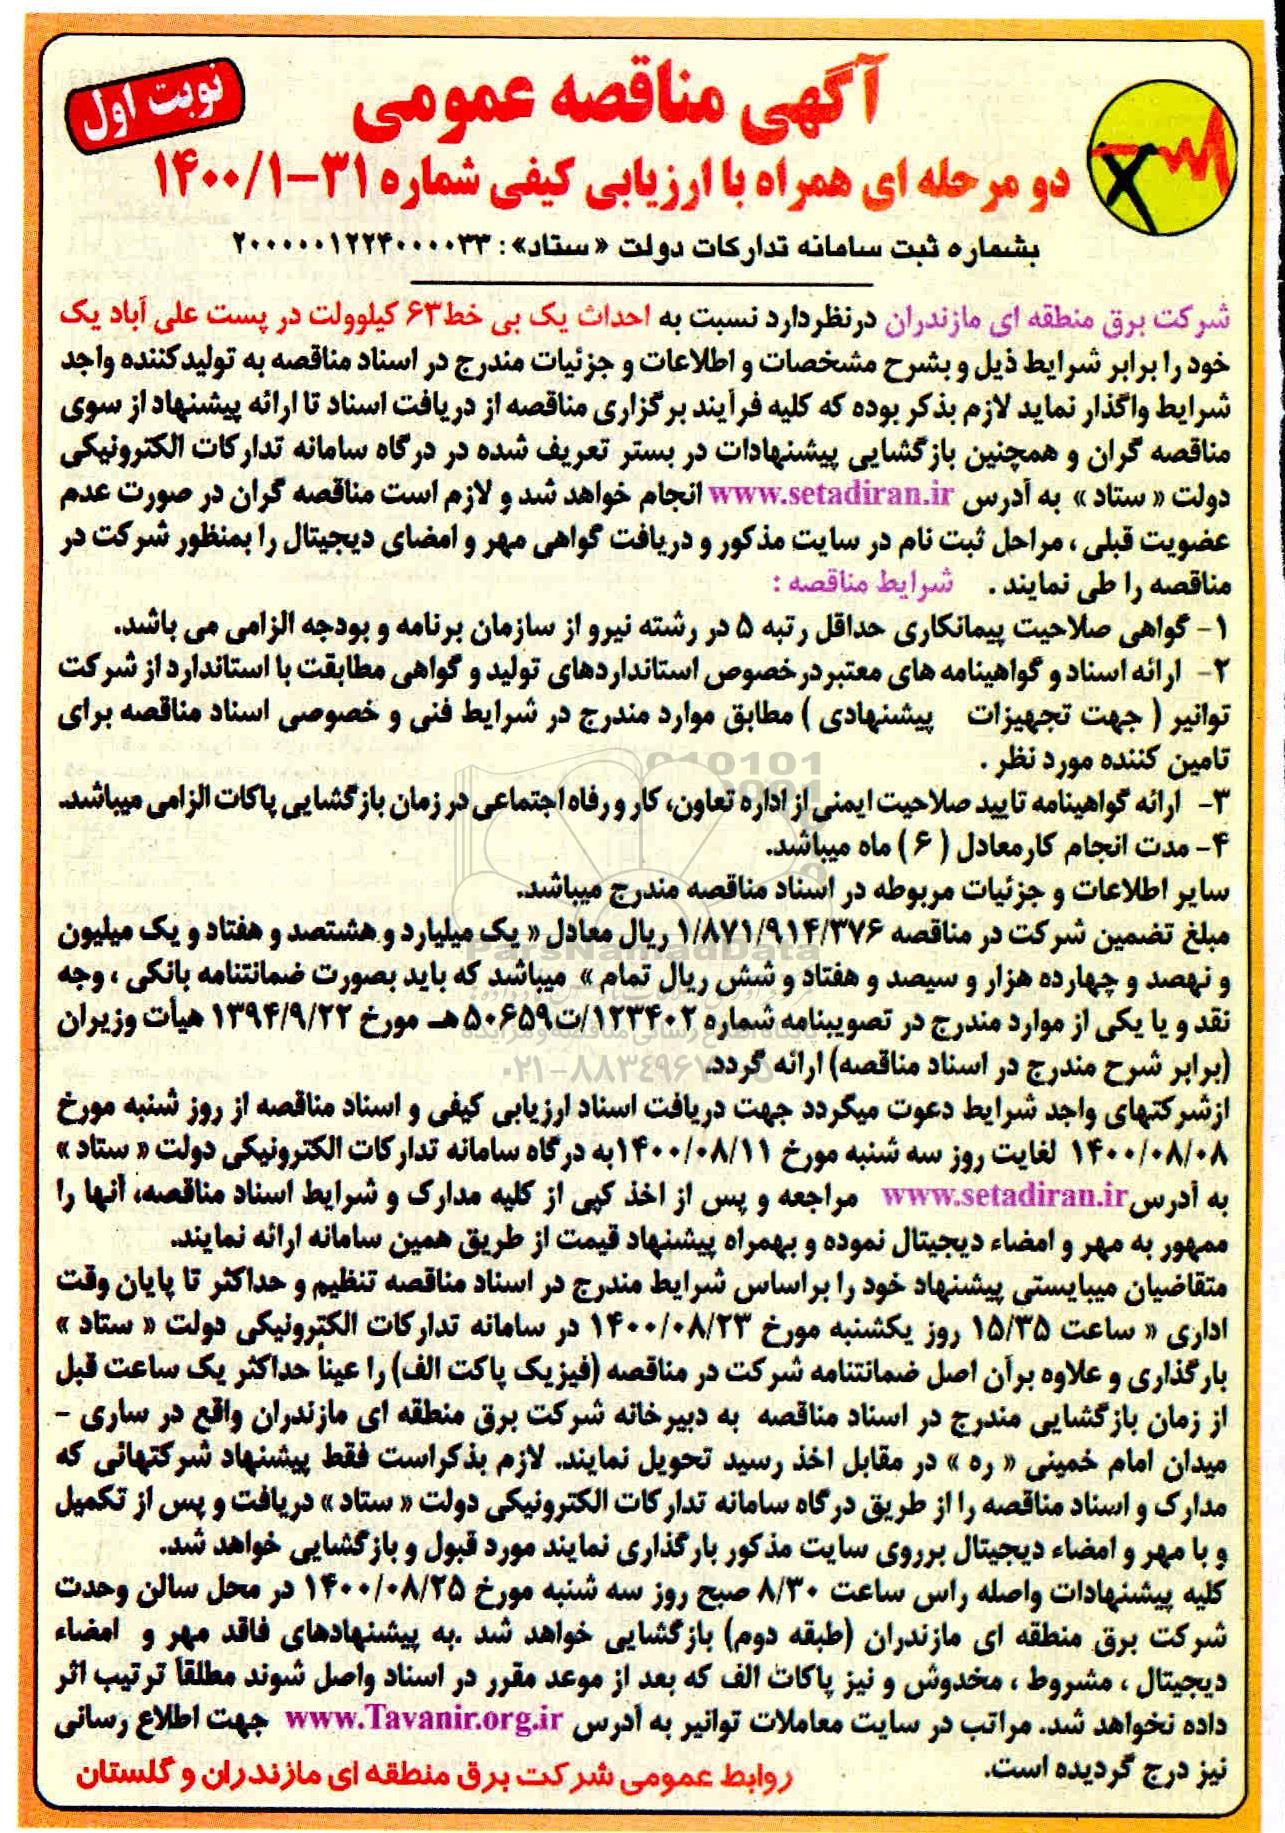 نوبت اول
آگهی مناقصه عمومی
دو مرحله ای همراه با ارزیابی کیفی شماره ۳۱-۱۴۰۰/۱
بشماره ثبت سامانه تدارکات دولت «ستاد»: ۲۰۰۰۰۰۱۲۲۴۰۰۰۰۳۳
شرکت برق منطقه ای مازندران درنظردارد نسبت به احداث یک بی خط۶۳ کیلوولت در پست علی آباد یک
خود را برابر شرایط ذیل و بشرح مشخصات و اطلاعات و جزئیات مندرج در اسناد مناقصه به تولیدکننده واجد
شرایط واگذار نماید لازم بذکر بوده که کلیه فرآیند برگزاری مناقصه از دریافت اسناد تا ارائه پیشنهاد از سوی
مناقصه گران و همچنین بازگشایی پیشنهادات در بستر تعریف شده در درگاه سامانه تدارکات الکترونیکی
دولت « ستاد » به آدرس www.setadiran.ir انجام خواهد شد و لازم است مناقصه گران در صورت عدم
عضویت قبلی ، مراحل ثبت نام در سایت مذکور و دریافت گواهی مهر و امضای دیجیتال را بمنظور شرکت در
مناقصه را طی نمایند . شرایط مناقصه :
۱- گواهی صلاحیت پیمانکاری حداقل رتبه ۵ در رشته نیرو از سازمان برنامه و بودجه الزامی می باشد.
۲- ارائه اسناد و گواهینامه های معتبر درخصوص استانداردهای تولید و گواهی مطابقت با استاندارد از شرکت
توانیر ( جهت تجهیزات پیشنهادی ) مطابق موارد مندرج در شرایط فنی و خصوصی اسناد مناقصه برای
تامین کننده مورد نظر .
۳- ارائه گواهینامه تایید صلاحیت ایمنی از اداره تعاون، کار و رفاه اجتماعی در زمان بازگشایی پاکات الزامی میباشد.
۴- مدت انجام کارمعادل ( ۶ ) ماه میباشد.
سایر اطلاعات و جزئیات مربوطه در اسناد مناقصه مندرج میباشد.
مبلغ تضمین شرکت در مناقصه ۱/۸۷۱/۹۱۴/۳۷۶ ریال معادل « یک میلیارد و هشتصد و هفتاد و یک میلیون
و نهصد و چهارده هزار و سیصد و هفتاد و شش ریال تمام » میباشد که باید بصورت ضمانتنامه بانکی ، وجه
نقد و یا یکی از موارد مندرج در تصویبنامه شماره ۱۲۳۴۰۲/ت۵۰۶۵۹هـ مورخ ۱۳۹۴/۹/۲۲ هیأت وزیران
(برابر شرح مندرج در اسناد مناقصه) ارائه گردد.
ازشرکتهای واجد شرایط دعوت میگردد جهت دریافت اسناد ارزیابی کیفی و اسناد مناقصه از روز شنبه مورخ
۱۴۰۰/۰۸/۰۸ لغایت روز سه شنبه مورخ ۱۴۰۰/۰۸/۱۱به درگاه سامانه تدارکات الکترونیکی دولت « ستاد »
به آدرسwww.setadiran.ir مراجعه و پس از اخذ کپی از کلیه مدارک و شرایط اسناد مناقصه، آنها را
ممهور به مهر و امضاء دیجیتال نموده و بهمراه پیشنهاد قیمت از طریق همین سامانه ارائه نمایند.
متقاضیان میبایستی پیشنهاد خود را براساس شرایط مندرج در اسناد مناقصه تنظیم و حداکثر تا پایان وقت
اداری « ساعت ۱۵/۳۵ روز یکشنبه مورخ ۱۴۰۰/۰۸/۲۳ در سامانه تدارکات الکترونیکی دولت « ستاد »
بارگذاری و علاوه برآن اصل ضمانتنامه شرکت در مناقصه (فیزیک پاکت الف) را عیناً حداکثر یک ساعت قبل
از زمان بازگشایی مندرج در اسناد مناقصه به دبیرخانه شرکت برق منطقه ای مازندران واقع در ساری -
میدان امام خمینی « ره » در مقابل اخذ رسید تحویل نمایند. لازم بذکراست فقط پیشنهاد شرکتهائی که
مدارک و اسناد مناقصه را از طریق درگاه سامانه تدارکات الکترونیکی دولت « ستاد » دریافت و پس از تکمیل
و با مهر و امضاء دیجیتال برروی سایت مذکور بارگذاری نمایند مورد قبول و بازگشایی خواهد شد.
کلیه پیشنهادات واصله راس ساعت ۸/۳۰ صبح روز سه شنبه مورخ ۱۴۰۰/۰۸/۲۵ در محل سالن وحدت
شرکت برق منطقه ای مازندران (طبقه دوم) بازگشایی خواهد شد .به پیشنهادهای فاقد مهر و امضاء
دیجیتال ، مشروط ، مخدوش و نیز پاکات الف که بعد از موعد مقرر در اسناد واصل شوند مطلقاً ترتیب اثر
داده نخواهد شد. مراتب در سایت معاملات توانیر به آدرس www.Tavanir.org.ir جهت اطلاع رسانی
نیز درج گردیده است.
روابط عمومی شرکت برق منطقه ای مازندران و گلستان
ParsNamadData